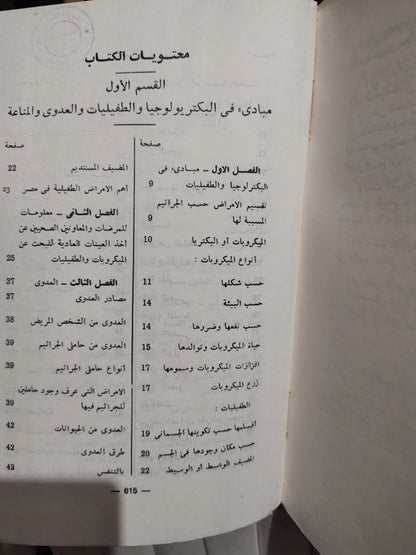 محتويات الكتاب
القسم الأول
مبادىء فى البكتريولوجيا والطفيليات والعدوى والمناعة
صفحة
الفصل الاول ــ مبادىء فى
البكترلوجيا والطفيليات 9
تقسيم الامراض حسب الجراثيم
المسببة لها 9
الميكروبات أو البكتريا 10
أنواع الميكروبات :
حسب شكلها 11
حسب البيئة 14
حسب نفعها وضررها 14
حياة الميكروبات وتوالدها 15
افزازات الميكروبات وسمومها 17
زرع الميكروبات 17
الطفيليات :
أقسامها حسب تكوينها الجسمانى 19
حسب مكان وجودها فى الجسم 20
المضيف الواسط أو الوسيط 22
صفحة
المضيف المستديم 22
أهم الامراض الطفيلية فى مصر 23
الفصل الثانى ــ معلومات
للممرضات والمعاونين الصحيين عن
أخذ العينات العادية للبحث عن
الميكروبات والطفيليات 25
الفصل الثالث ــ العدوى 37
مصادر العدوى 37
العدوى من الشخص المريض 38
العدوى من حاملى الجراثيم 39
أنواع حاملى الجراثيم 39
الامراض التى عرف وجود حاملين
للجراثيم فيها 39
العدوى من الحيوانات 42
طرق العدوى 42
بالتنفس 43
— 615 —